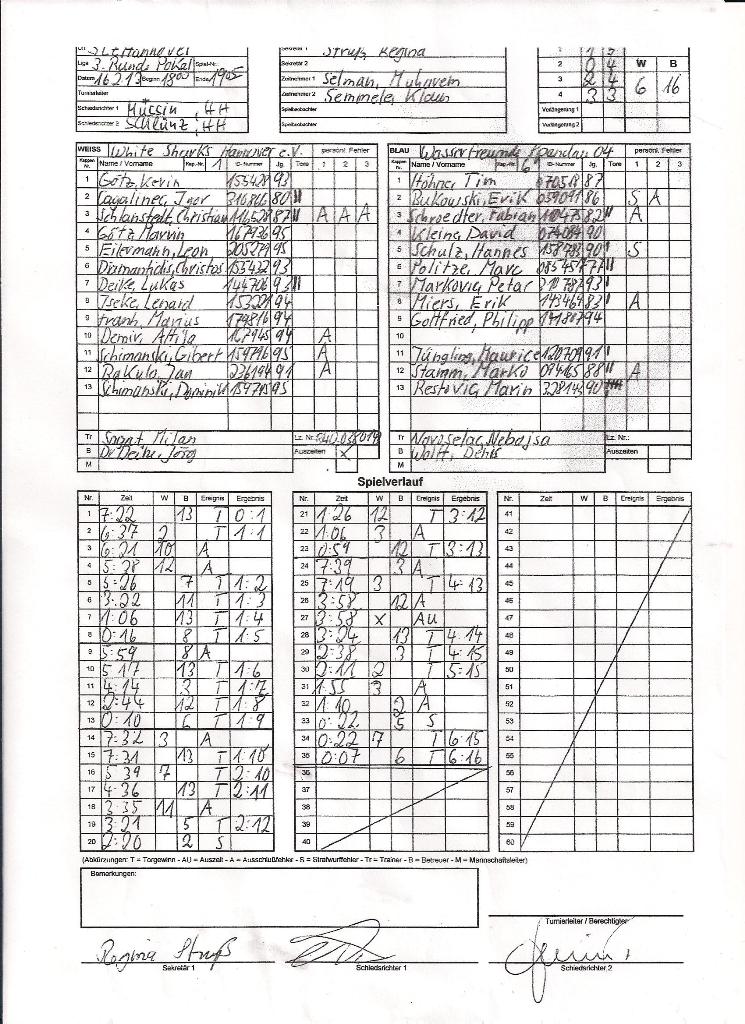 Sekretär 1 Struß, Regina
Liga 3. Runde Pokal Spiel-Nr.
Sekretär 2
Datum 16.2.13 Beginn 18:00 Ende 19:05
Zeitnehmer 1 Selman, Muharem
Turnierleiter
Zeitnehmer 2
Schiedsrichter 1 HH
Spielbeobachter
Schiedsrichter 2 Schlünz, HH
Spielbeobachter
1 1 5
2 0 4 W B
3 2 4 6 16
4 3 3
Verlängerung 1
Verlängerung 2
WEISS White Sharks Hannover e.V. persönl. Fehler
Kappen Nr. Name / Vorname Kap.-Nr. 1 ID-Nummer Jg. Tore 1 2 3
1 Götz, Kevin 93
2 Cagalinec, Igor 80 II
3 Schlanstedt, Christian 87 II A A A
4 Götz, Marvin 167936 95
5 Eilermann, Leon 205279 95
6 Diamantidis, Christos 155432 93
7 Deike, Lukas 144706 93
8 Tseke, Lenard 94
9 Frank, Marius 179816 94
10 Demir, Attila 167945 94 A
11 Schimanski, Gibert 159796 95 A
12 Rakulo, Jan 226194 91 A
13 Schimanski, Dominik 159795 95
Tr Milan Lz. Nr.:
B Dr. Deike, Jörg Auszeiten X
M
BLAU Wasserfreunde Spandau 04 persönl. Fehler
Kappen Nr. Name / Vorname Kap.-Nr. 6 ID-Nummer Jg. Tore 1 2 3
1 Höhne, Tim 070518 87
2 Bukowski, Erik 039091 86 S A
3 Schroedter, Fabian 110475 82 II A
4 Kleine, David 074084 90
5 Schulz, Hannes 90 I S
6 Politze, Marc 77 II
7 Markovic, Petar 93 I
8 Miers, Erik 143469 83 I A
9 Gottfried, Philipp 94
10
11 Jüngling, Maurice 120709 91 I
12 Stamm, Marko 094165 88 II A
13 Restovic, Marin 328143 90
Tr Novoselac, Nebojsa Lz. Nr.:
B Wolff, Denis Auszeiten
M
Spielverlauf
Nr. Zeit W B Ereignis Ergebnis
1 7:22 13 T 0:1
2 6:37 2 T 1:1
3 6:21 10 A
4 5:28 12 A
5 5:26 7 T 1:2
6 3:22 11 T 1:3
7 1:06 13 T 1:4
8 0:16 8 T 1:5
9 5:59 8 A
10 5:17 13 T 1:6
11 4:14 3 T 1:7
12 2:44 12 T 1:8
13 0:10 6 T 1:9
14 7:32 3 A
15 7:31 13 T 1:10
16 5:39 7 T 2:10
17 4:36 13 T 2:11
18 3:35 11 A
19 3:21 5 T 2:12
20 2:20 2 S
Nr. Zeit W B Ereignis Ergebnis
21 1:26 12 T 3:12
22 1:06 3 A
23 0:59 12 T 3:13
24 7:39 3 A
25 7:19 3 T 4:13
26 3:58 12 A
27 3:58 X AU
28 3:24 13 T 4:14
29 2:38 3 T 4:15
30 2:11 2 T 5:15
31 1:55 3 A
32 1:10 2 A
33 0:22 5 S
34 0:22 7 T 6:15
35 0:07 6 T 6:16
36
37
38
39
40
Nr. Zeit W B Ereignis Ergebnis
41
42
43
44
45
46
47
48
49
50
51
52
53
54
55
56
57
58
59
60
(Abkürzungen: T = Torgewinn - AU = Auszeit - A = Ausschlußfehler - S = Strafwurffehler - Tr = Trainer - B = Betreuer - M = Mannschaftsleiter)
Bemerkungen:
Turnierleiter / Berechtigter
Regina Struß
Sekretär 1 Schiedsrichter 1 Schiedsrichter 2